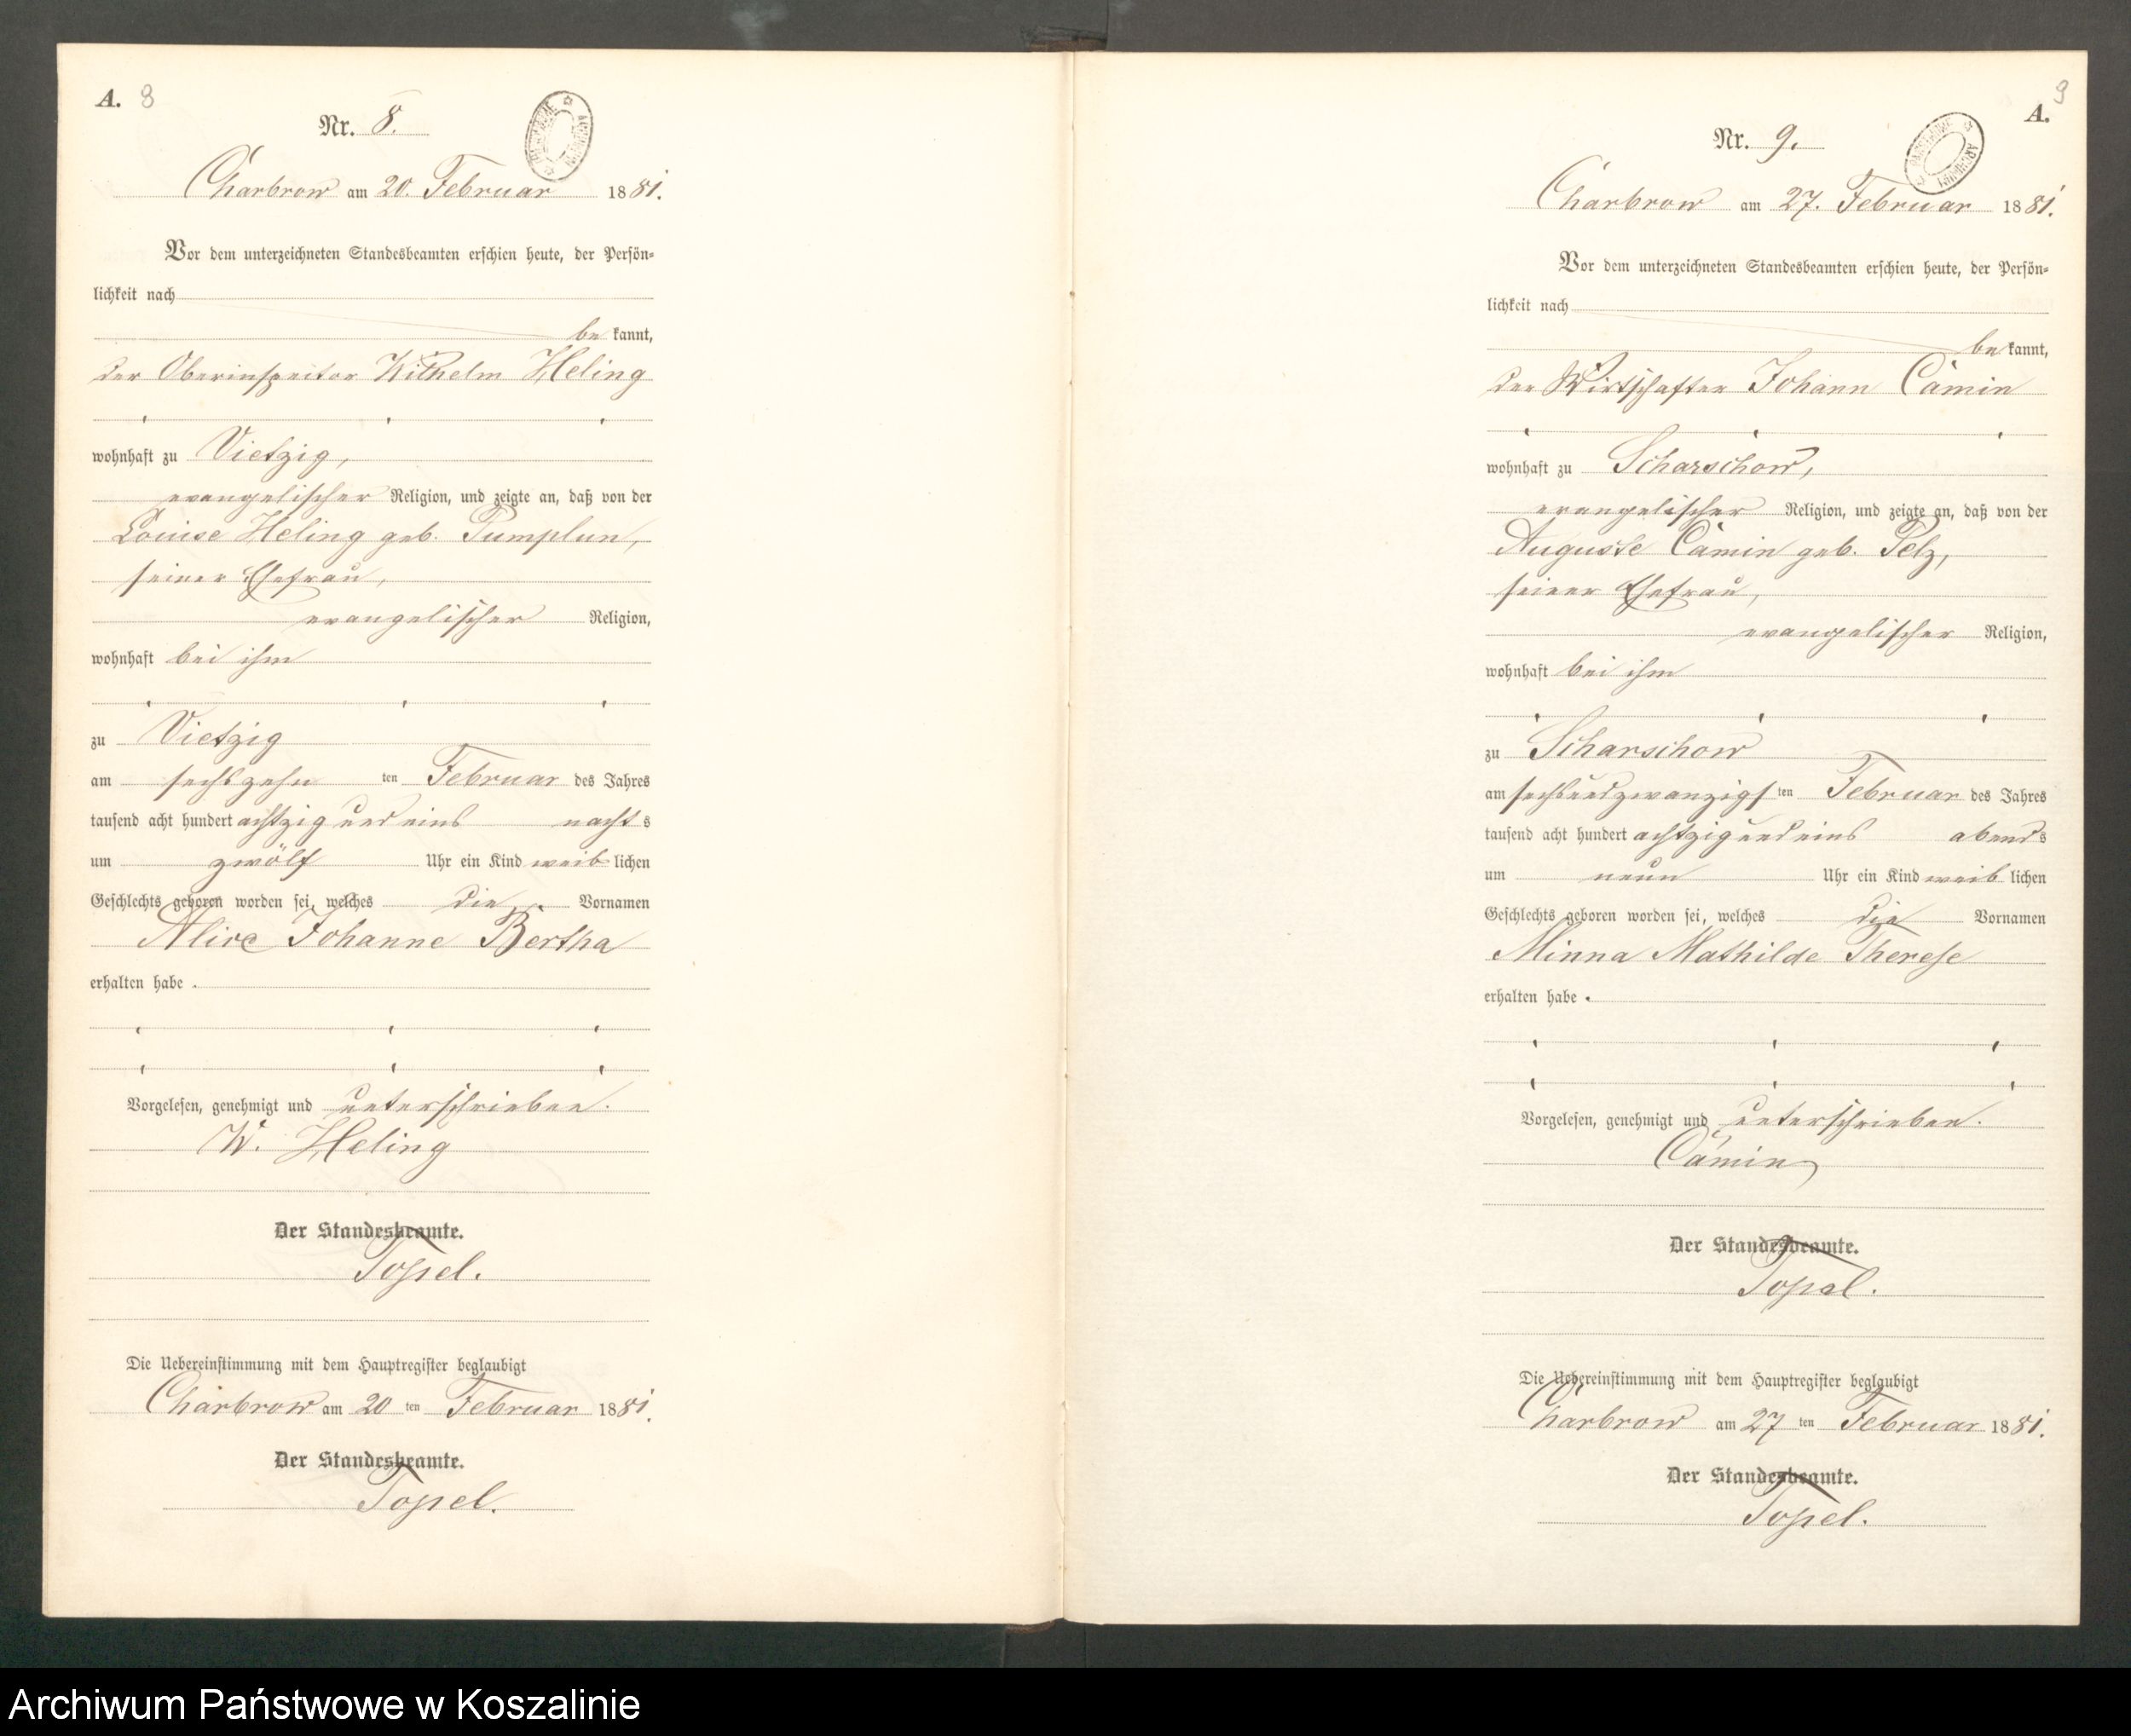 A. 8
Nr. 8.
Charbrow am 20. Februar 1881.
Vor dem unterzeichneten Standesbeamten erschien heute, der Persön-
lichkeit nach
be kannt,
der Oberinspector Wilhelm Heling
wohnhaft zu Vietzig,
evangelischer Religion, und zeigte an, daß von der
Louise Heling geb. Pumplun,
seiner Ehefrau,
evangelischer Religion,
wohnhaft bei ihm
zu Vietzig
am sechszehn ten Februar des Jahres
tausend acht hundert achtzig und eins nacht s
um zwölf Uhr ein Kind weib lichen
Geschlechts geboren worden sei, welches die Vornamen
Alice Johanne Bertha
erhalten habe.
Vorgelesen, genehmigt und unterschrieben.
W. Heling
Der Standesbeamte.
Topel.
Die Uebereinstimmung mit dem Hauptregister beglaubigt
Charbrow am 20 ten Februar 1881.
Der Standesbeamte.
Topel.
9
A.
Nr. 9.
Charbrow am 27. Februar 1881.
Vor dem unterzeichneten Standesbeamten erschien heute, der Persön-
lichkeit nach
be kannt,
der Wirtschafter Johann Camin
wohnhaft zu Scharschow,
evangelischer Religion, und zeigte an, daß von der
Auguste Camin geb. Pelz,
seiner Ehefrau,
evangelischer Religion,
wohnhaft bei ihm
zu Scharschow
am sechsundzwanzigs ten Februar des Jahres
tausend acht hundert achtzig und eins abend s
um neun Uhr ein Kind weib lichen
Geschlechts geboren worden sei, welches die Vornamen
Minna Mathilde Therese
erhalten habe.
Vorgelesen, genehmigt und unterschrieben.
Camin
Der Standesbeamte.
Topel.
Die Uebereinstimmung mit dem Hauptregister beglaubigt
Charbrow am 27 ten Februar 1881.
Der Standesbeamte.
Topel.
Archiwum Państwowe w Koszalinie